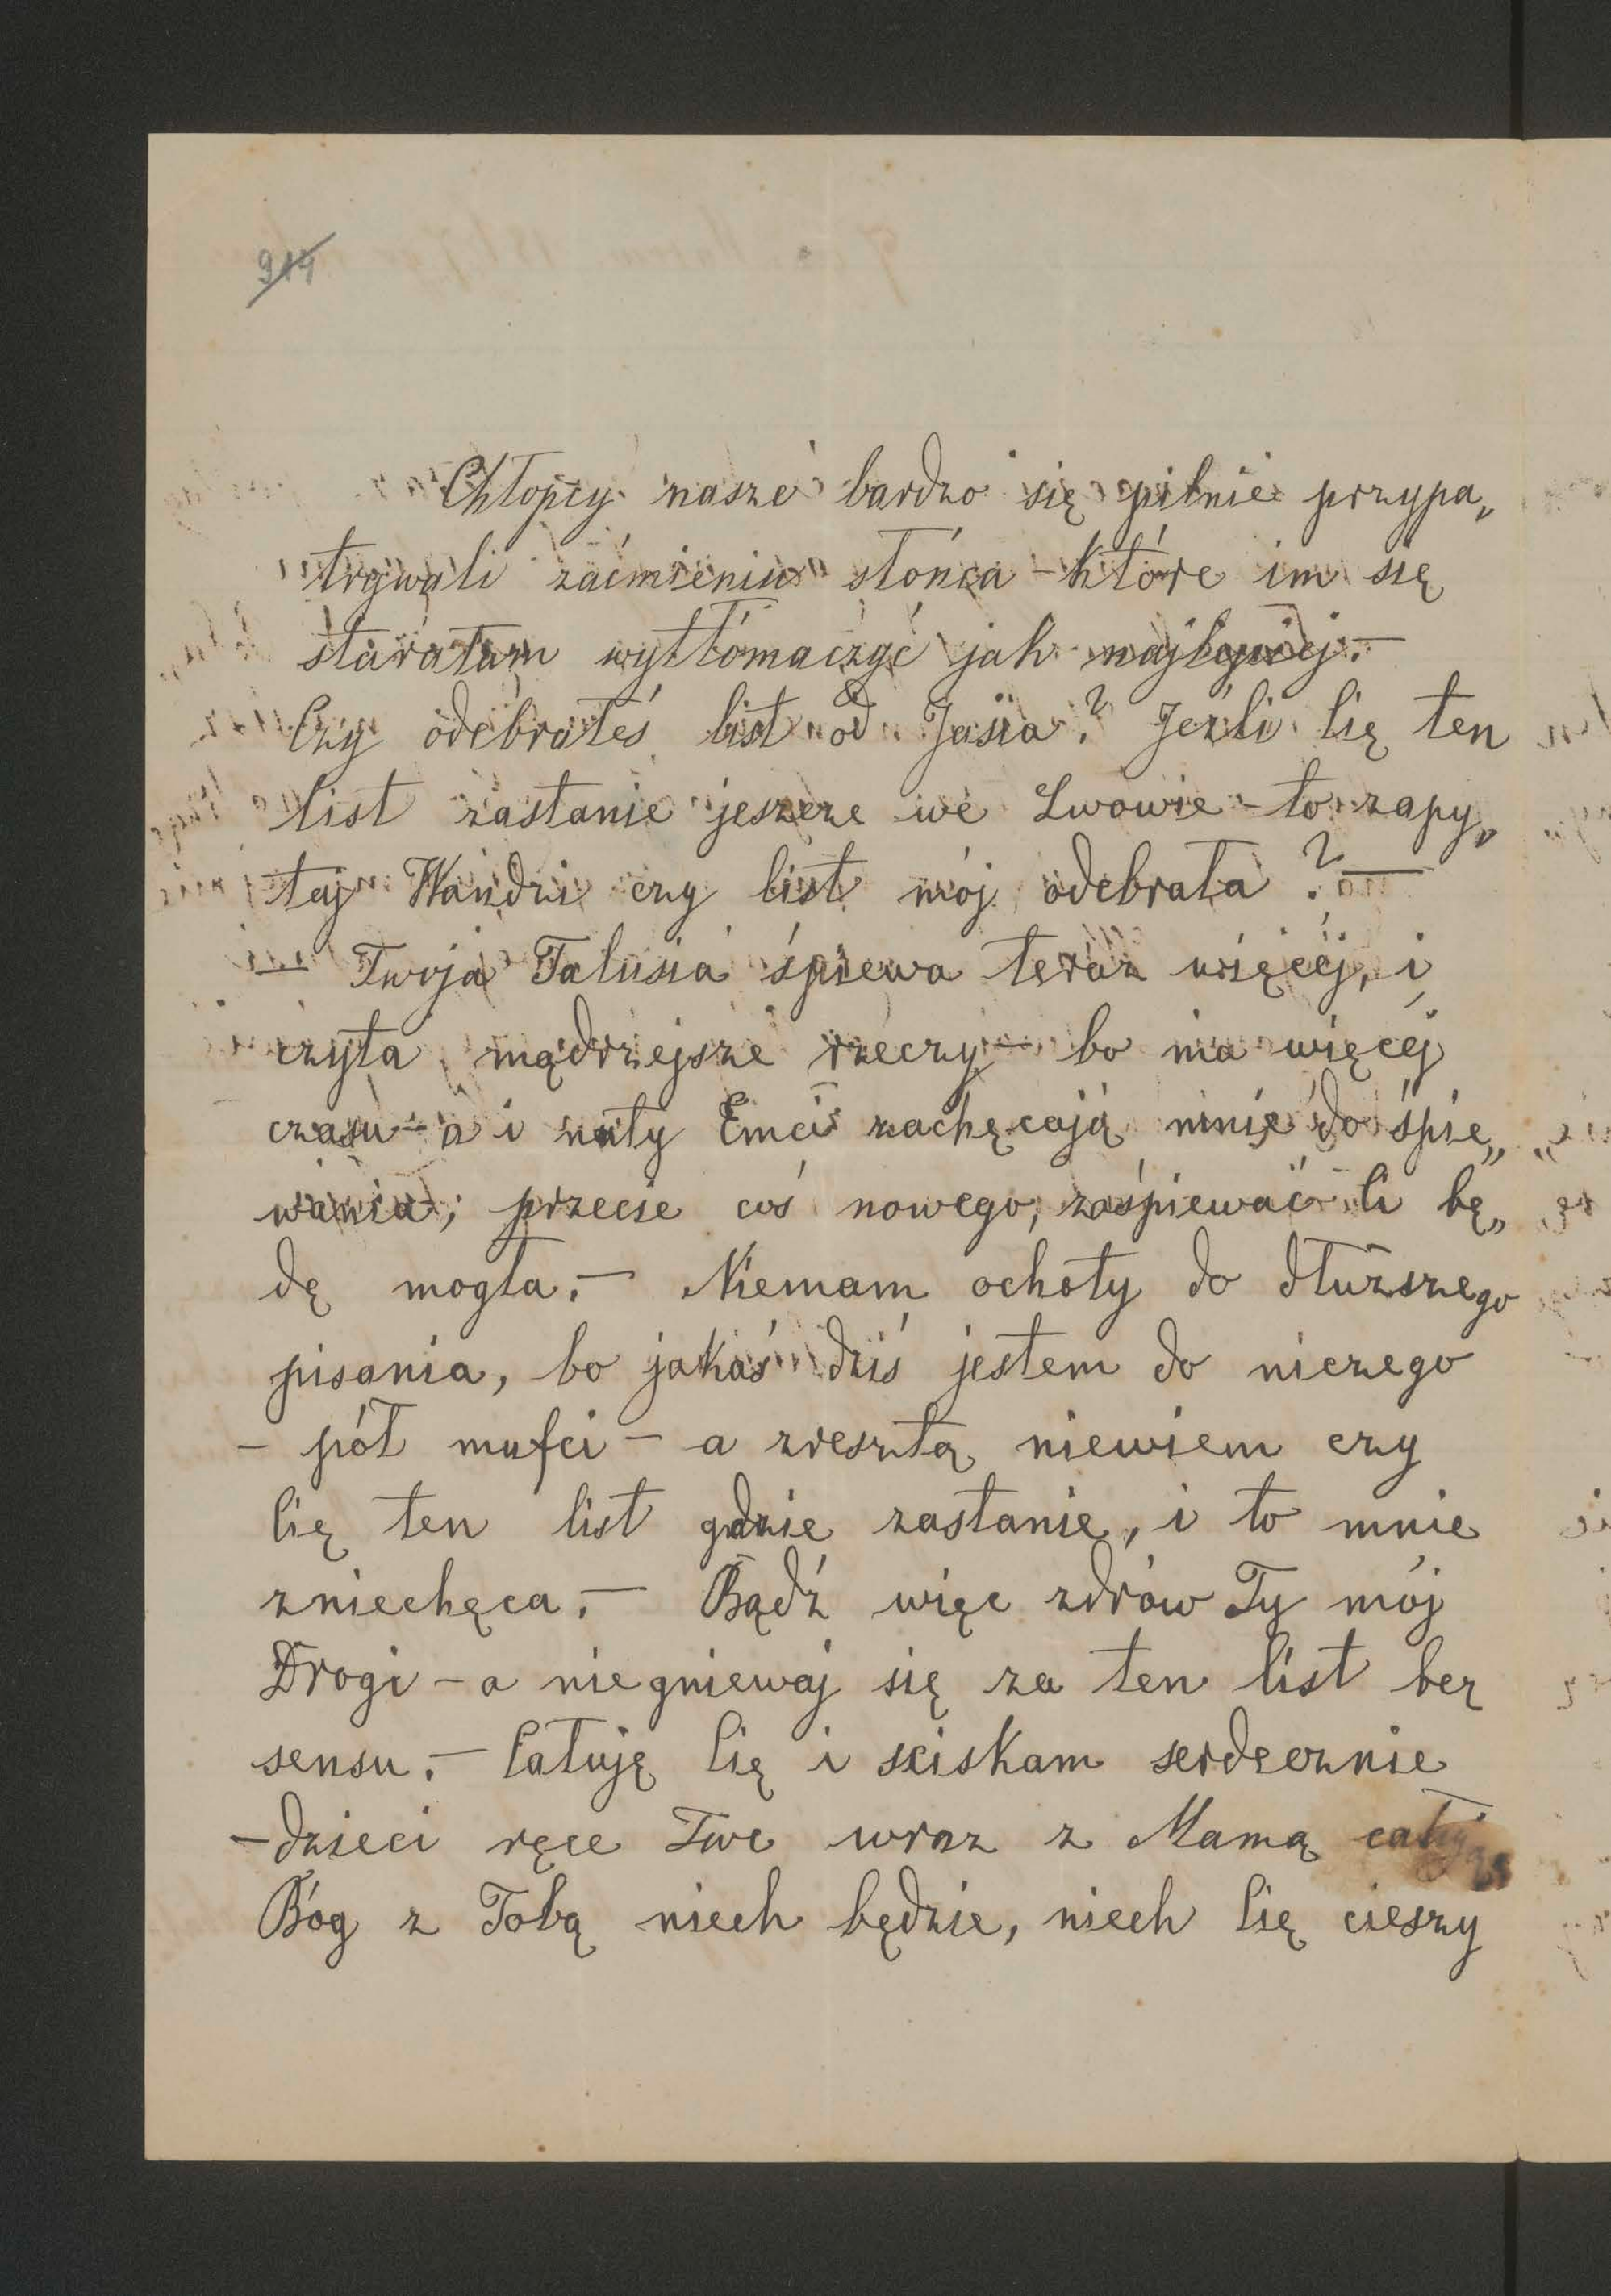 914
Chłopcy nasze bardzo się pilnie przypa„
trywali zaćmieniu słońca – które im się
starałam wytłómaczyć jak najlepiej. –
Czy odebrałeś list od Jasia? Jeźli Cię ten
list zastanie jeszcze we Lwowie – to zapy„
taj Wandzi czy list mój odebrała? –
– Twoja Talusia śpiewa teraz więcéj, i
czyta mądrzejsze rzeczy – bo ma więcéj
czasu – a i nuty Emci zachęcają mnie do śpie„
wania; przecie coś nowego, zaśpiewać Ci bę„
dę mogła. – Niemam ochoty do dłuższego
pisania, bo jakaś dziś jestem do niczego
– pół mufci – a zresztą niewiem czy
Cię ten list gdzie zastanie, i to mnie
zniechęca. – Bądź więc zdrów Ty mój
Drogi – a niegniewaj się za ten list bez
sensu. – Całuję Cię i sciskam serdecznie
– dzieci ręce Twe wraz z Mamą
Bóg z Tobą niech będzie, niech Cię cieszy